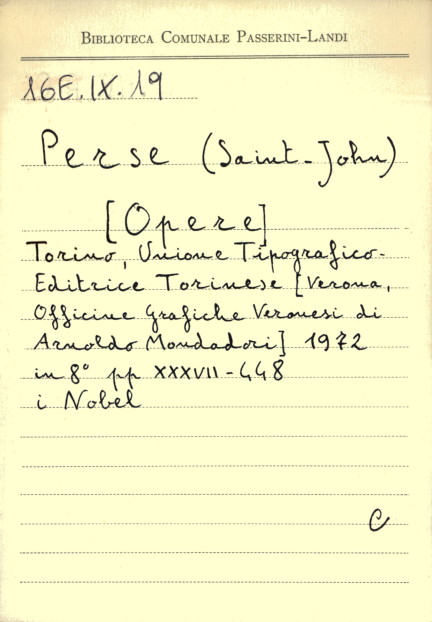 BIBLIOTECA COMUNALE PASSERINI-LANDI
16E.IX.19
Perse (Saint-John)
[Opere]
Torino, Unione Tipografico-
Editrice Torinese [Verona,
Officine Grafiche Veronesi di
Arnoldo Mondadori] 1972
in 8° pp XXXVII-448
i Nobel
C